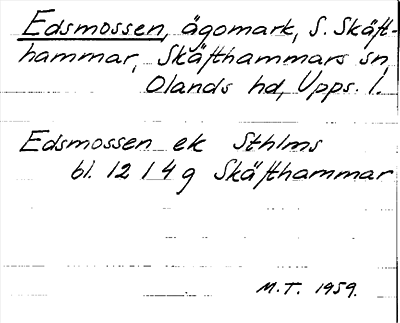 Edsmossen, ägomark, S. Skäft-
hammar, Skäfthammars sn,
Olands hd, Upps. l.
Edsmossen ek Sthlms
bl. 12 I 4 g Skäfthammar
M.T. 1959.